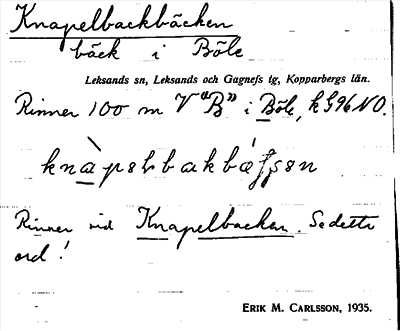 Knapelbackbäcken
bäck i Böle
Leksands sn, Leksands och Gagnefs tg, Kopparbergs län.
Rinner 100 m V "B" i Böle, k 596 NO.
Rinner vid Knapelbacken. Se detta
ord!
ERIK M. CARLSSON, 1935.